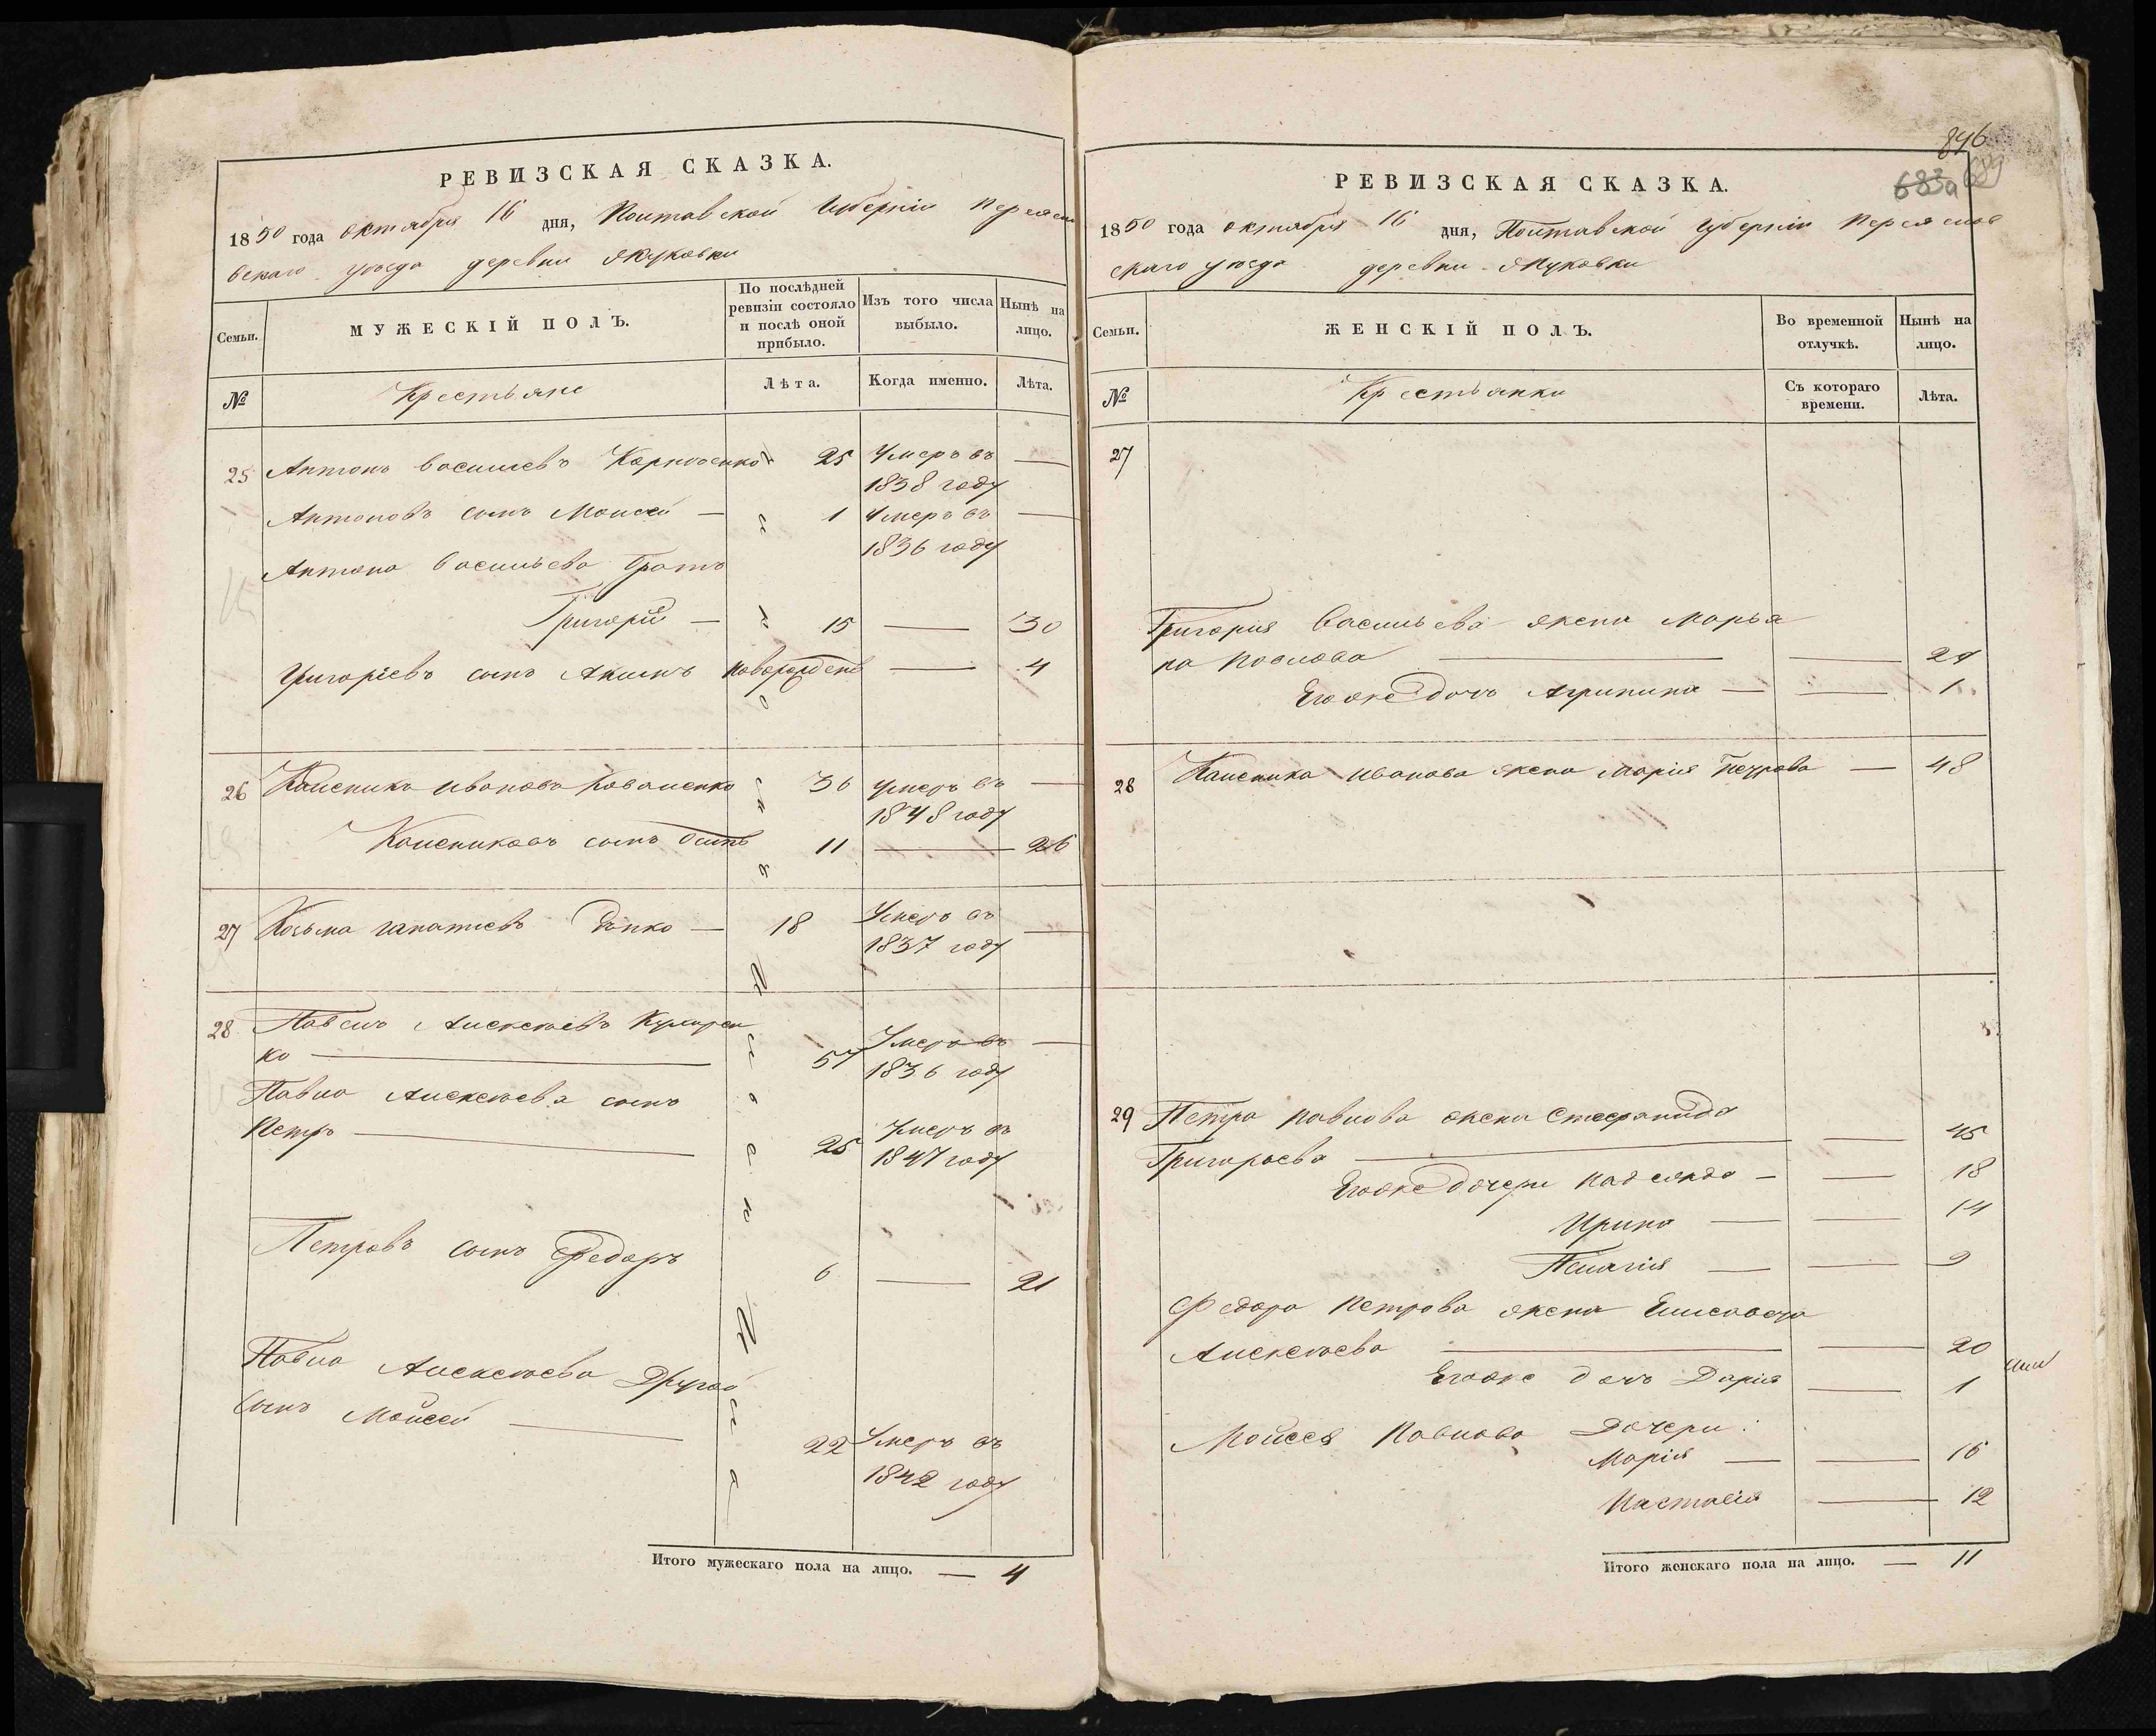 РЕВИЗСКАЯ СКАЗКА.
1850 года октября 16 дня, Полтавской Губерніи Переясл
вскаго уѣзда деревни Яцковки
Семьи.
МУЖЕСКІЙ ПОЛЪ.
По послѣдней ревизіи состояло и послѣ оной прибыло.
Изъ того числа выбыло.
Нынѣ на лицо.
№
Крестьяне
Лѣта.
Когда именно.
Лѣта.
25 Антонъ Васильевъ 25 Умеръ въ —
1838 году
Антоновъ сынъ Моисей — 1 Умеръ въ —
1836 году
Антона Васильева братъ
Григорій — 15 — 30
Григоріевъ сынъ Акимъ новорожденъ — 4
26 Калиника Иванова Коваленко 36 умеръ въ —
1848 году
Калениковъ сынъ Осипъ 11 — 26
27 Козьма — 18 Умеръ въ —
1837 году
28 Павелъ Алексѣевъ
ко — 57 Умеръ въ —
1836 году
Павла Алексѣева сынъ
Петръ — 25 Умеръ въ
1847 году
Петровъ сынъ Федоръ 6 — 21
Павла Алексѣева Другой
сынъ Мойсей — 22 Умеръ въ
1842 году
Итого мужескаго пола на лицо. — 4
846
683а 689
РЕВИЗСКАЯ СКАЗКА.
1850 года октября 16 дня, Полтавской Губерніи Переяслов
скаго уѣзда деревни Яцковки
Семьи.
ЖЕНСКІЙ ПОЛЪ.
Во временной отлучкѣ.
Нынѣ на лицо.
№
Крестьянки
Съ котораго времени.
Лѣта.
27
Григорія Васильева жена Марья
на Павлова — — 24
Егоже дочь Агрипина — — 1
28 Каленика Иванова жена Марія Петрова — 48
29 Петра Павлова жена Стефанида
Григорьева — — 45
Егоже дочери Надежда — — 18
Ирина — — 14
Пелагія — — 9
Федора Петрова жена Елисавета
Алексѣева — — 20
Егоже дочь Дарія — 1
Мойсея Павлова Дочери:
Марія — — 16
Настасія — 12
Итого женскаго пола на лицо. — 11